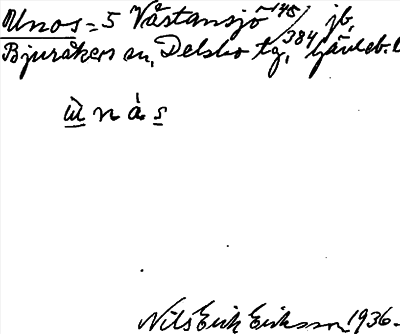 Unos = 5 Västansjö 145/384 jb,
Bjuråkers sn, Delsbo tg, Gävleb. l
ù n å s
Nils Erik Eriksson 1936.